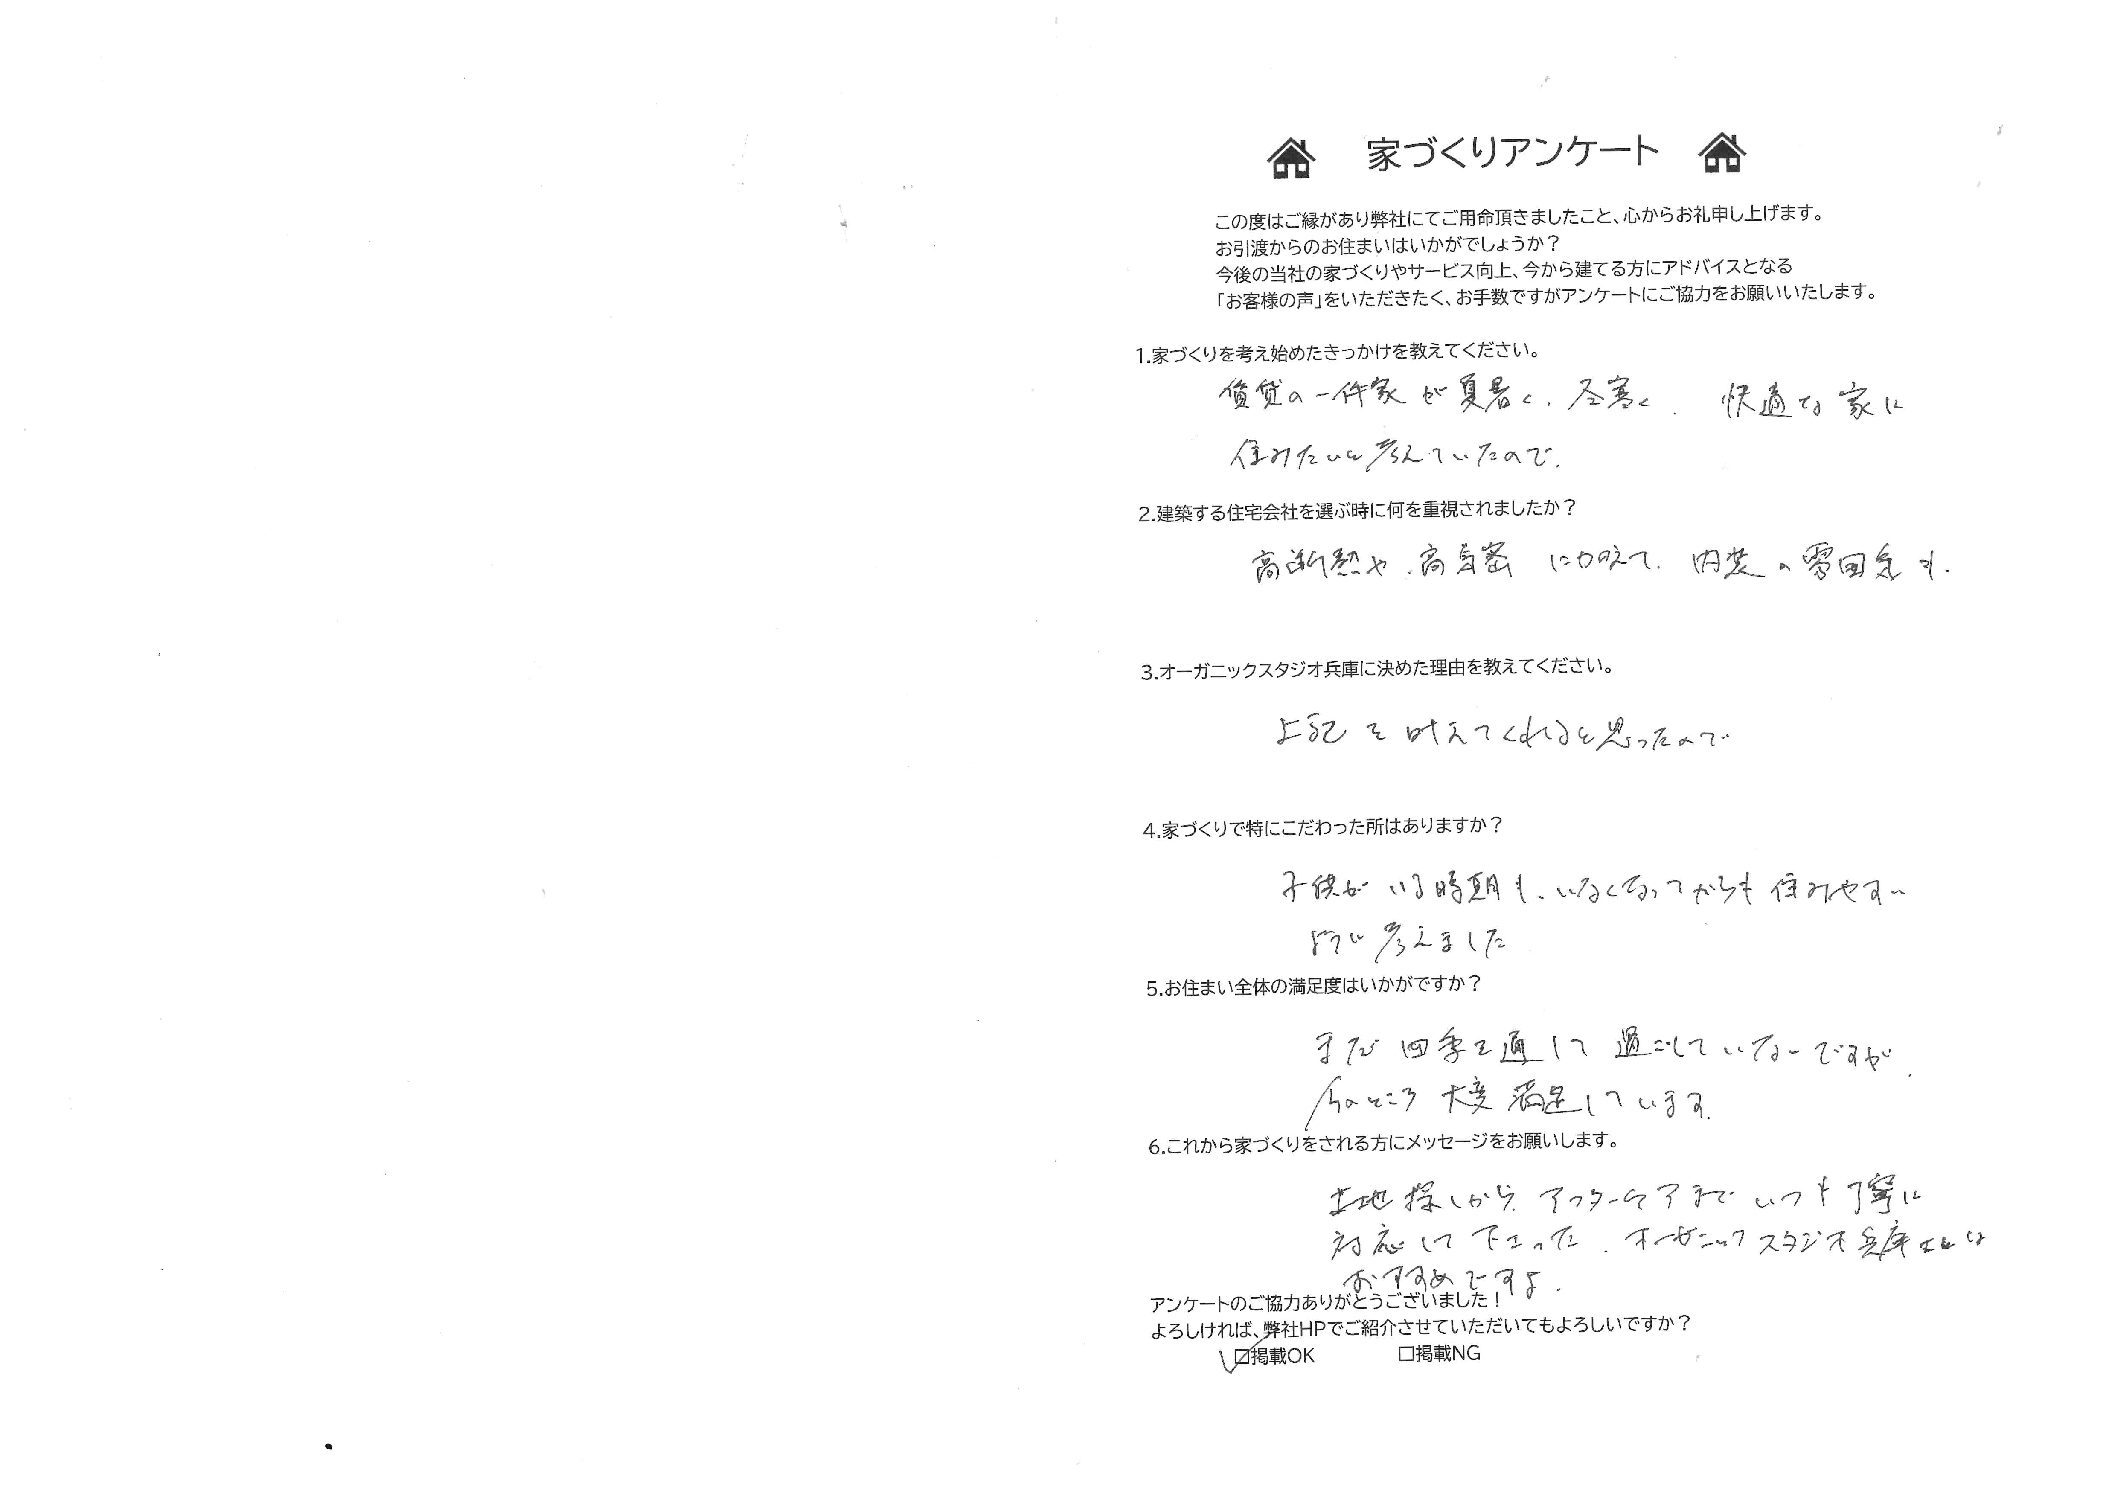 家づくりアンケート
この度はご縁があり弊社にてご用命頂きましたこと、心からお礼申し上げます。
お引渡からのお住まいはいかがでしょうか？
今後の当社の家づくりやサービス向上、今から建てる方にアドバイスとなる
「お客様の声」をいただきたく、お手数ですがアンケートにご協力をお願いいたします。
1.家づくりを考え始めたきっかけを教えてください。
賃貸の一件家が夏暑く、冬寒く、快適な家に
住みたいと考えていたので。
2.建築する住宅会社を選ぶ時に何を重視されましたか？
高断熱や、高気密にかえて、内装の雰囲気も。
3.オーガニックスタジオ兵庫に決めた理由を教えてください。
上記を叶えてくれると思ったので
4.家づくりで特にこだわった所はありますか？
子供がいる時期も、いなくなってからも住みやすい
ように考えました
5.お住まい全体の満足度はいかがですか？
まだ四季を通して過ごしていないですが、
今のところ大変満足しています。
6.これから家づくりをされる方にメッセージをお願いします。
土地探しから、アフターケアまでいつも丁寧に
対応して下さった、オーガニックスタジオ兵庫さんは
おすすめですよ。
アンケートのご協力ありがとうございました！
よろしければ、弊社HPでご紹介させていただいてもよろしいですか？
☑掲載OK □掲載NG